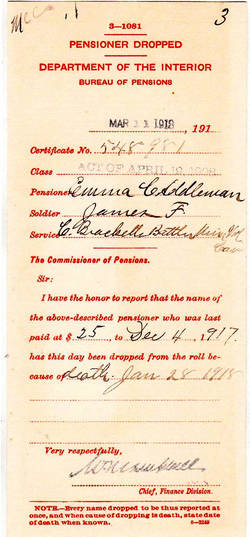 3
3—1081
PENSIONER DROPPED
DEPARTMENT OF THE INTERIOR
BUREAU OF PENSIONS
MAR 11 1918, 191
Certificate No. 548981
Class ACT OF APRIL 19, 1908
Pensioner Emma C Addleman
Soldier James F.
Service C.
The Commissioner of Pensions.
Sir:
I have the honor to report that the name of
the above-described pensioner who was last
paid at $ 25, to Dec 4, 1917.
has this day been dropped from the roll be-
cause of death. Jan 28 1918
Very respectfully,
Chief, Finance Division.
NOTE.—Every name dropped to be thus reported at
once, and when cause of dropping is death, state date
of death when known.